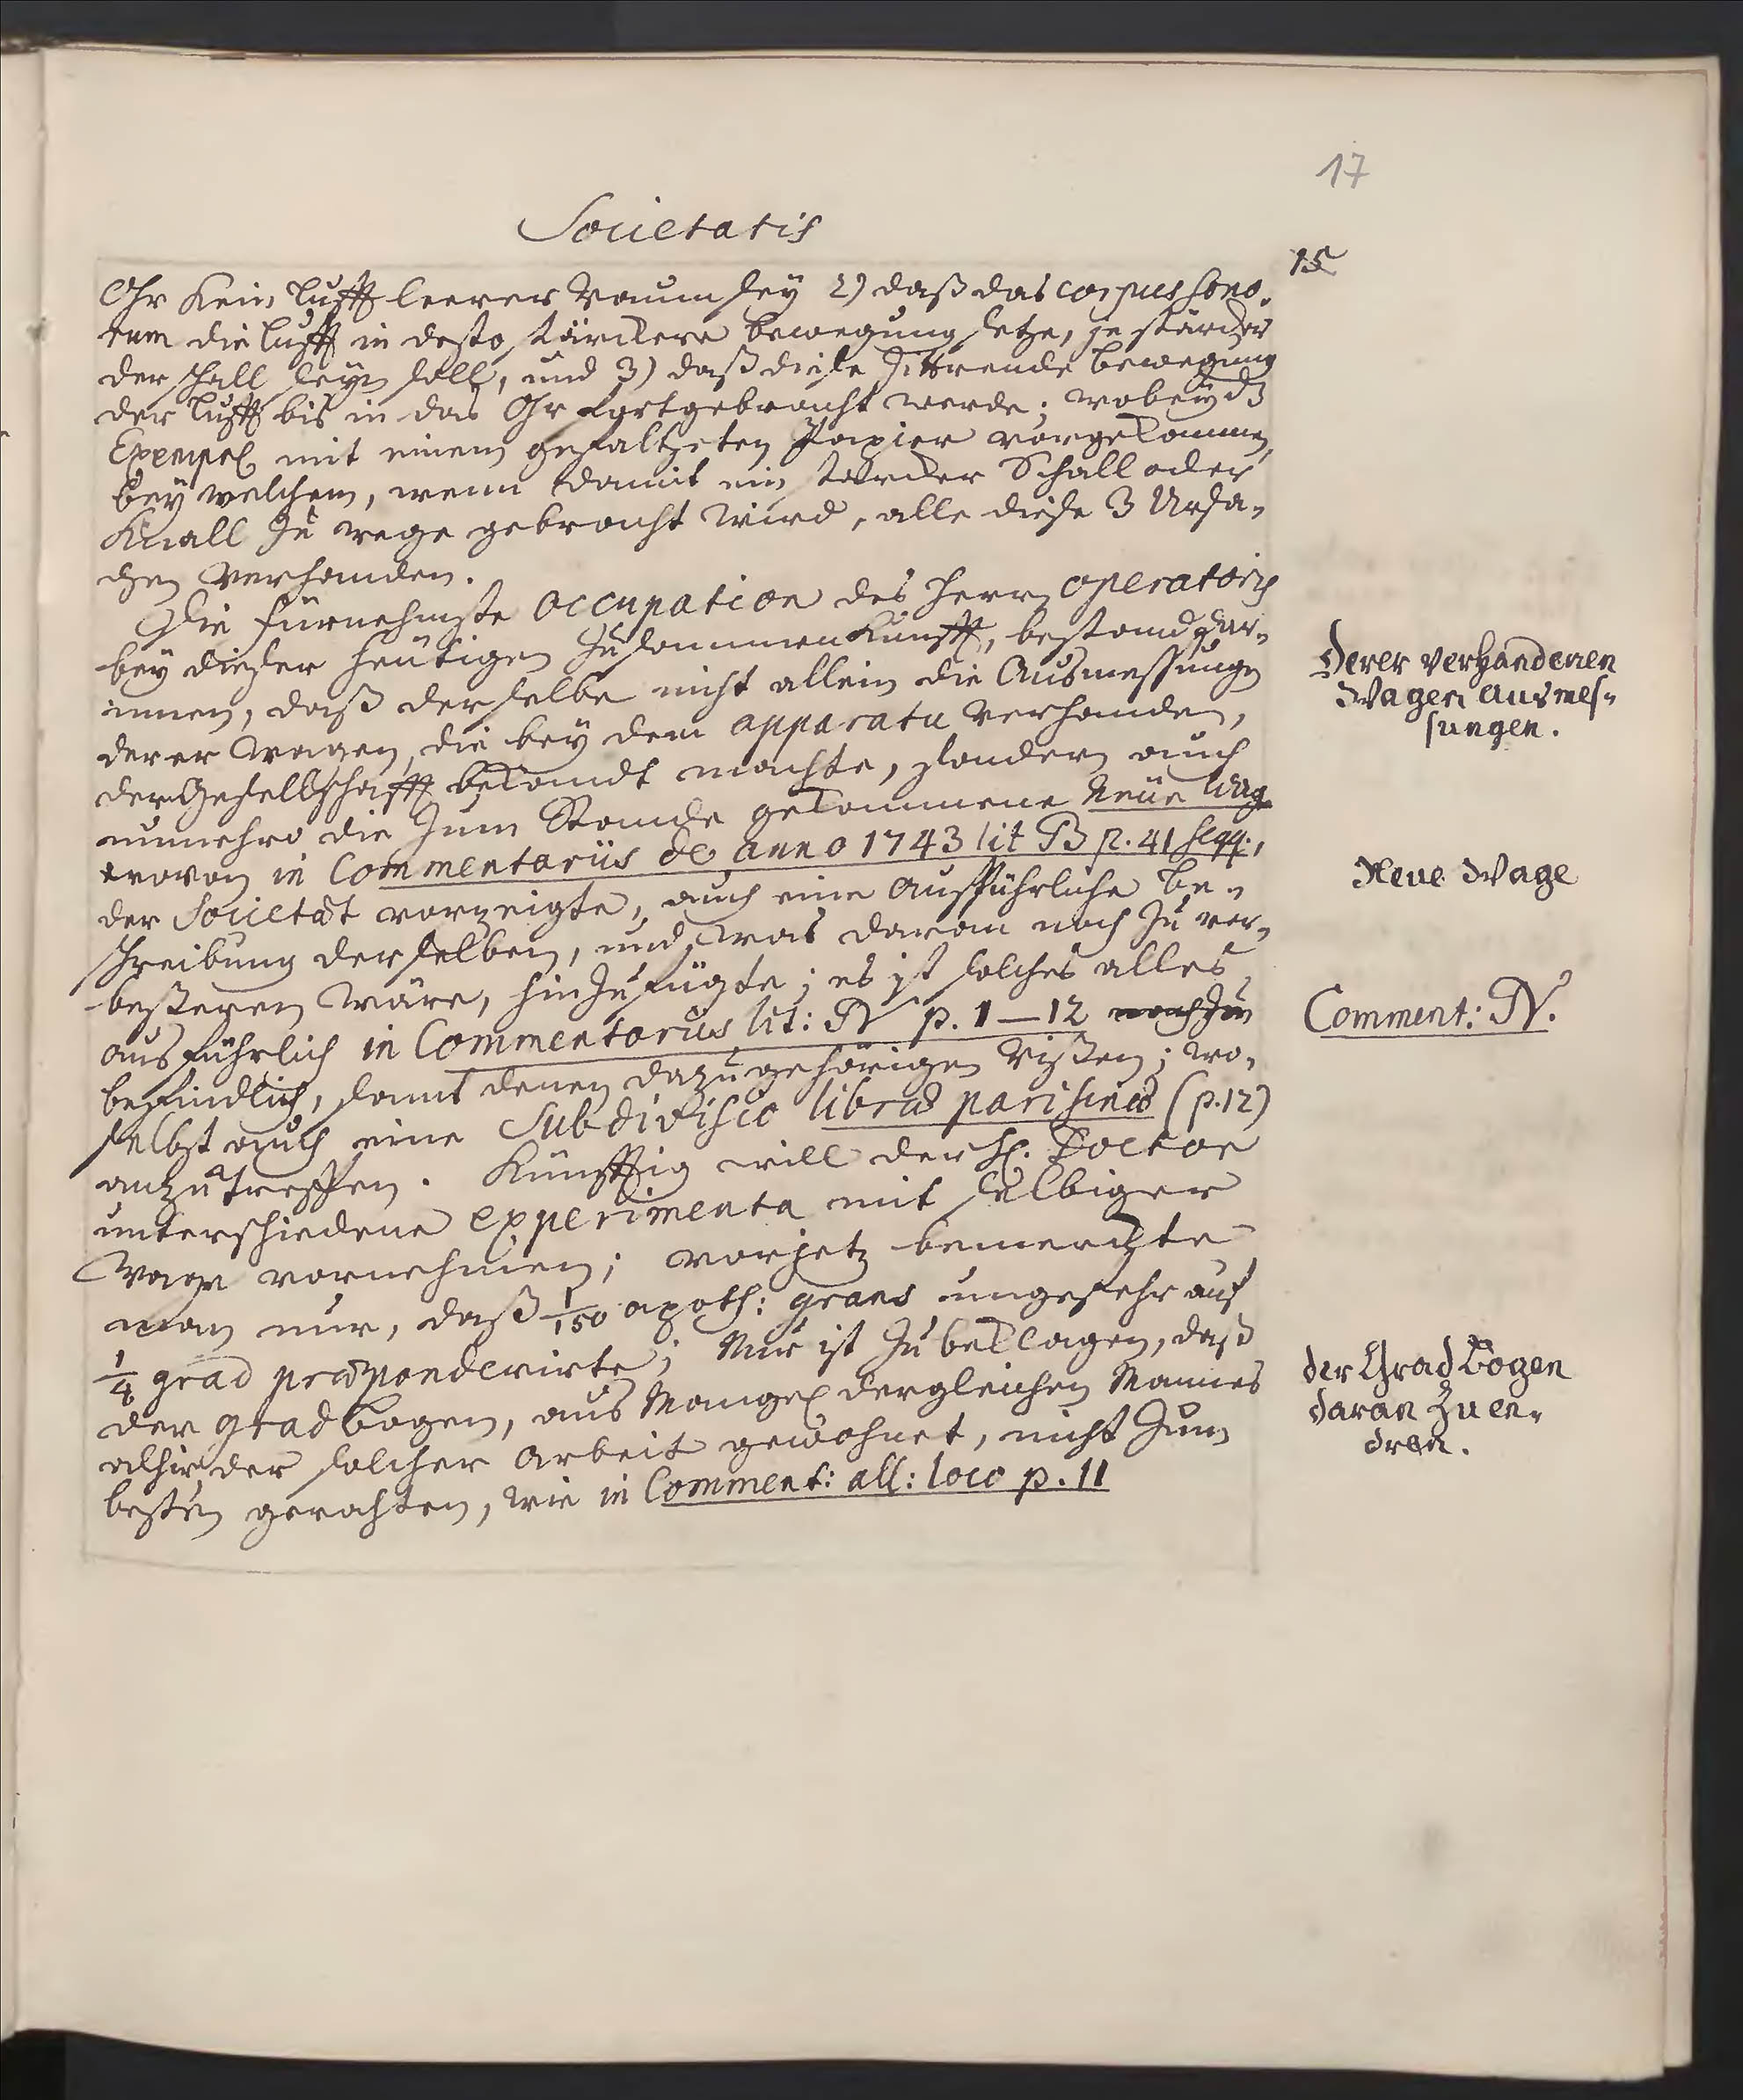 17
Societatis
15
Ohr kein lufft leerer Raum seÿ 2) daß das corpus sono-
rum die lufft in desto stärckere bewegung setze, je stärcker
der schall seÿn soll, und 3) daß diese zitterende bewegung
der lufft bis in das Ohr fortgebracht werde; wobeÿ dz
Exempel mit einem gefaltzeten Papier vorgekommen,
beÿ welchem, wenn damit ein starcker Schall oder
Knall zu wege gebracht wird, alle diese 3 Ursa-
chen verhanden.
Die fürnehmste occupation des Herrn operatoris
beÿ dieser heütigen Zusammenkunfft, bestand dar-
innen, daß derselbe nicht allein die Ausmessungen
derer Wagen, die beÿ dem apparatu verhanden,
der Gesellschafft bekandt machte, sondern auch
nunmehro die zum Stande gekommene Neüe Wage
wovon in Commentariis de anno 1743 lit B p. 41 seqq.,
der Societæt vorzeigte, auch eine ausführliche be-
schreibung derselben, und was daran noch zu ver-
besseren wäre, hinzufügte; es ist solches alles
ausführlich in Commentariis lit: N p. 1–12
befindlich, samt denen dazu gehörigen Rissen; wo-
selbst auch eine Subdivisio libræ parisinæ (p.12)
anzutreffen. Künfftig will der H. Doctor
unterschiedene experimenta mit selbiger
Wage vornehmen; vorjetz bemerckte
man nur, daß 1/150 apoth: grans ungefehr auf
1/4 grad præponderirte; Nur ist zu beklagen, daß
der gradbogen, aus Mangel dergleichen Mannes
alhir der solcher Arbeit gewohnet, nicht zum
besten gerahten, wie in Comment: all: loco p. 11
Derer verhandenen
Wagen ausmes-
sungen.
Neue Wage
Comment: N.
der Grad Bogen
daran zu en-
dren.